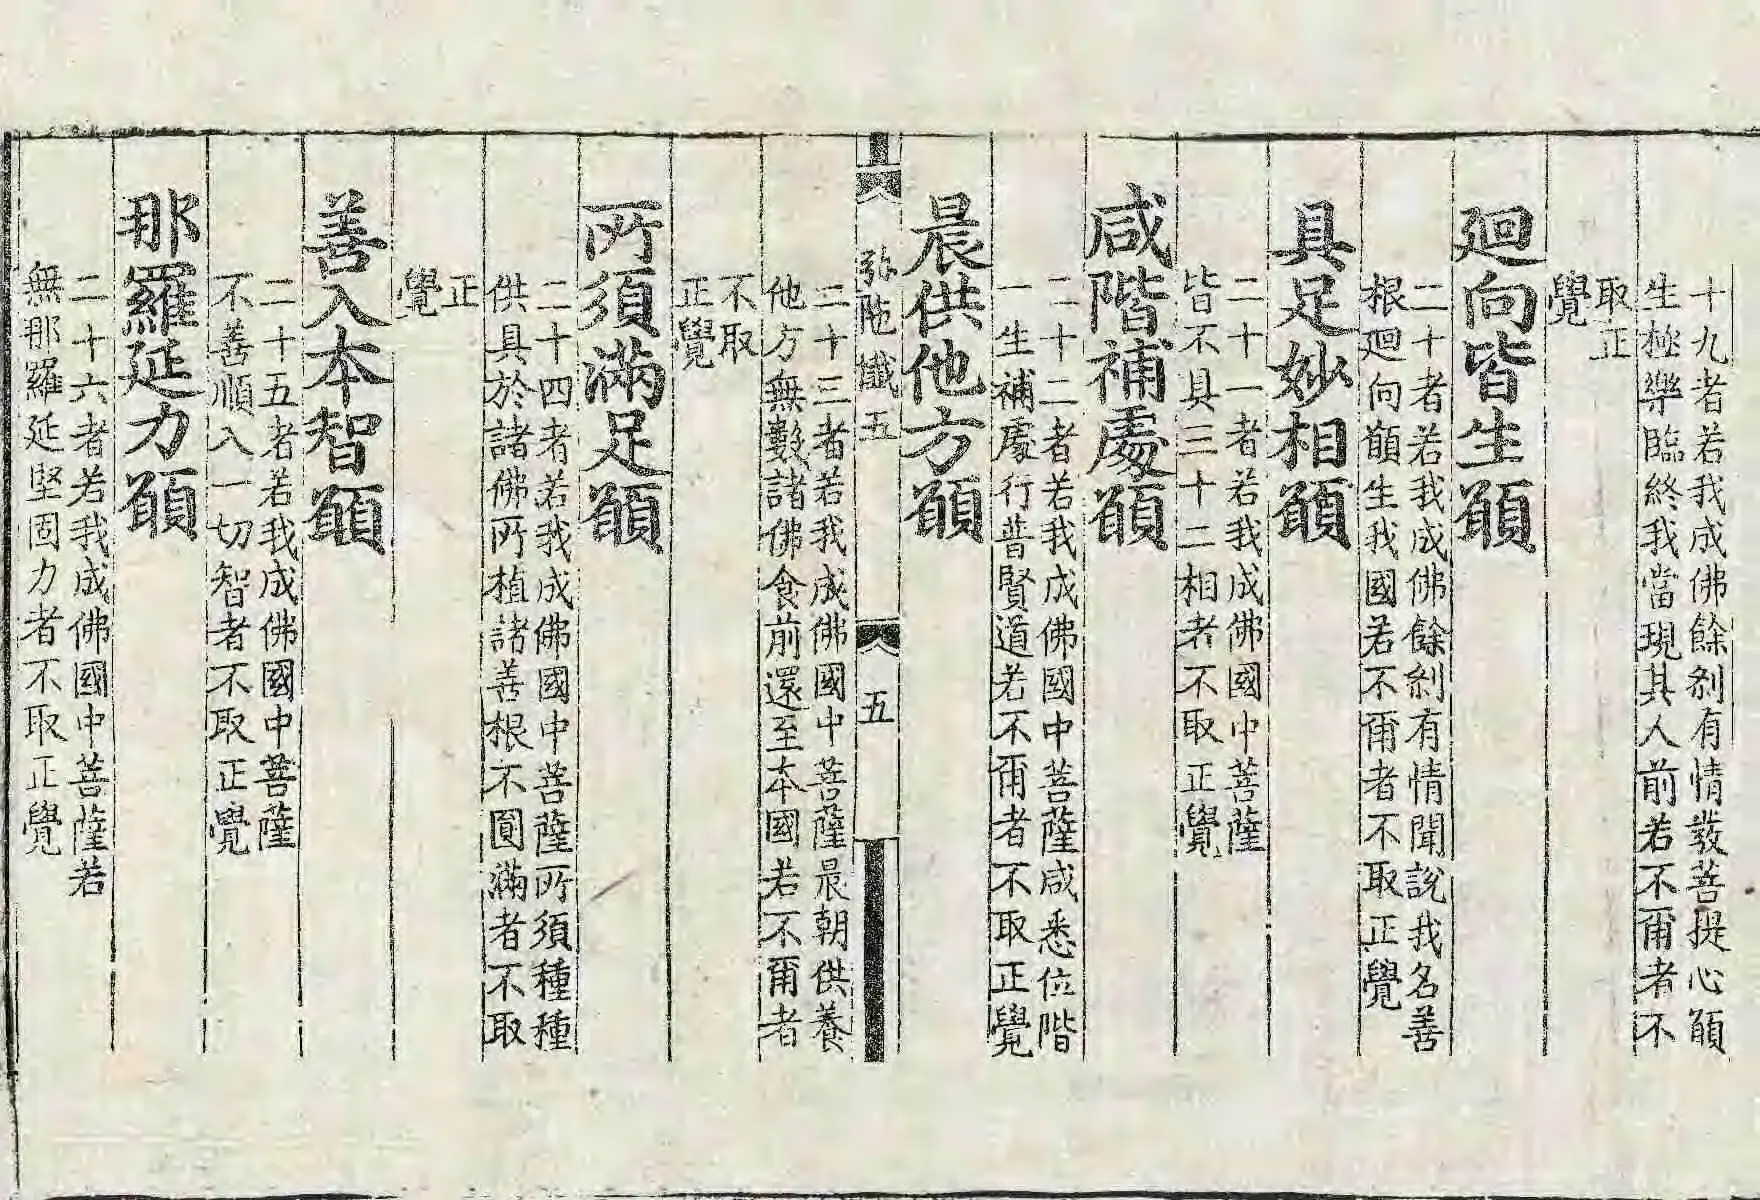 十九者若我成佛餘剎有情發菩提心願
生極樂臨終我當現其人前若不爾者不
取正
覺
廻向皆生願
二十者若我成佛餘剎有情聞說我名善
根廻向願生我國若不爾者不取正覺
具足妙相願
二十一者若我成佛國中菩薩
皆不具三十二相者不取正覺
咸階補處願
二十二者若我成佛國中菩薩咸悉位階
一生補處行普賢道若不爾者不取正覺
晨供他方願
弥陁懺五
五
二十三者若我成佛國中菩薩晨朝供養
他方無數諸佛食前還至本國若不爾者
不取
正覺
所須滿足願
二十四者若我成佛國中菩薩所須種種
供具於諸佛所植諸善根不圓滿者不取
正
覺
善入本智願
二十五者若我成佛國中菩薩
不善順入一切智者不取正覺
那羅延力願
二十六者若我成佛國中菩薩若
無那羅延堅固力者不取正覺